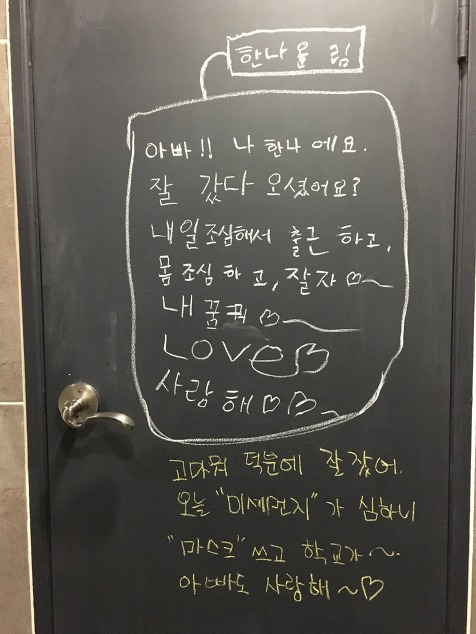 한나 올림
아빠!! 나 한나에요.
잘 갔다 오셨어요?
내일 조심해서 출근 하고,
몸 조심 하고, 잘자 ♡~
내 꿈 꿔 ♡~
LOVE♡
사랑해 ♡♡~
고마워 덕분에 잘 잤어.
오늘 "미세먼지"가 심하니
"마스크" 쓰고 학교가~.
아빠도 사랑해~♡